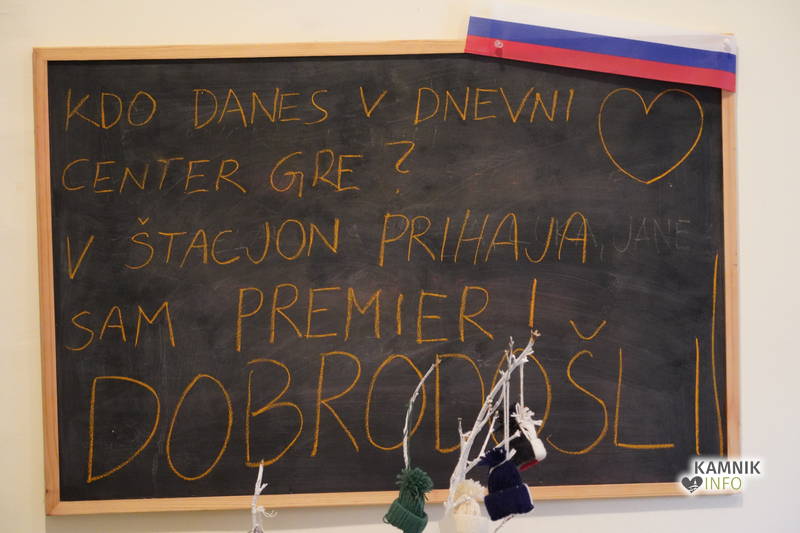 KDO DANES V DNEVNI
CENTER GRE?
V ŠTACJON PRIHAJA
, JANE
SAM PREMIER!
DOBRODOŠLI!
KAMNIK
INFO